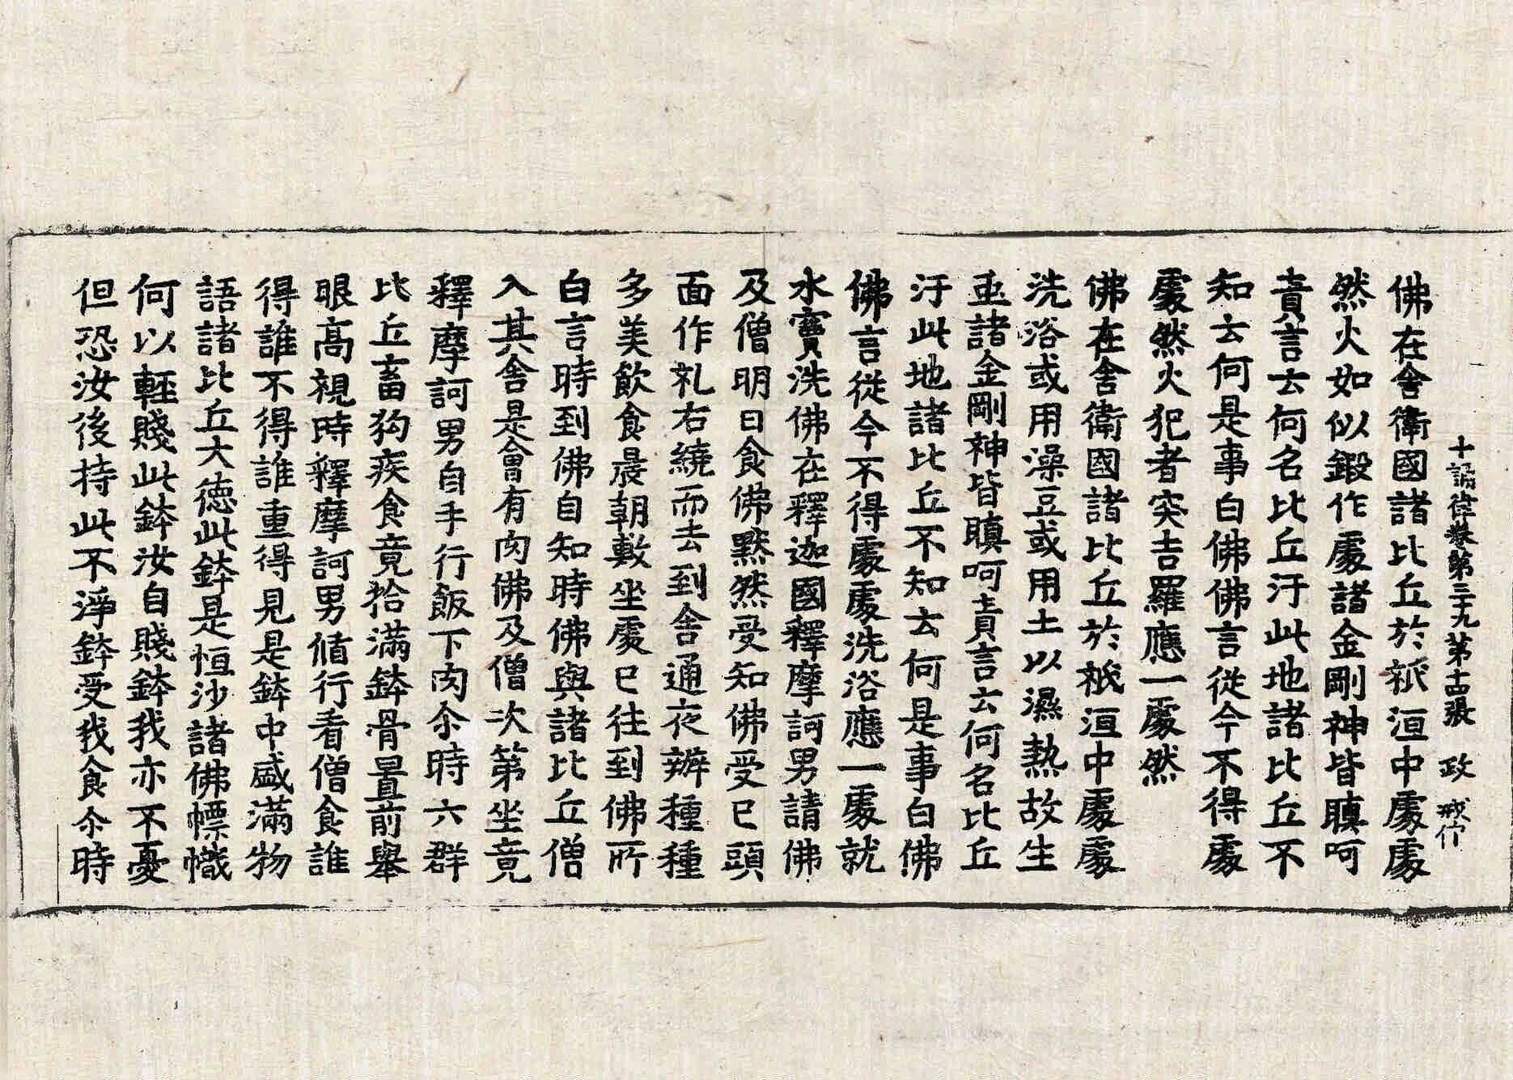 十誦律卷第三十九 第十四張 政
佛在舍衛國諸比丘於祇洹中處處
然火如似鍛作處諸金剛神皆瞋呵
責言云何名比丘汙此地諸比丘不
知云何是事白佛佛言從今不得處
處然火犯者突吉羅應一處然
佛在舍衛國諸比丘於祇洹中處處
洗浴或用澡豆或用土以濕熱故生
䖝諸金剛神皆瞋呵責言云何名比丘
汙此地諸比丘不知云何是事白佛
佛言從今不得處處洗浴應一處就
水竇洗佛在釋迦國釋摩訶男請佛
及僧明日食佛黙然受知佛受已頭
面作礼右繞而去到舍通夜辦種種
多美飲食晨朝敷坐處已往到佛所
白言時到佛自知時佛與諸比丘僧
入其舍是會有肉佛及僧次第坐竟
釋摩訶男自手行飯下肉尒時六群
比丘畜狗疾食竟拾滿鉢骨置前舉
眼高視時釋摩訶男脩行看僧食誰
得誰不得誰重得見是鉢中盛滿物
語諸比丘大德此鉢是恒沙諸佛幖幟
何以輕賤此鉢汝自賤鉢我亦不憂
但恐汝後持此不淨鉢受我食尒時